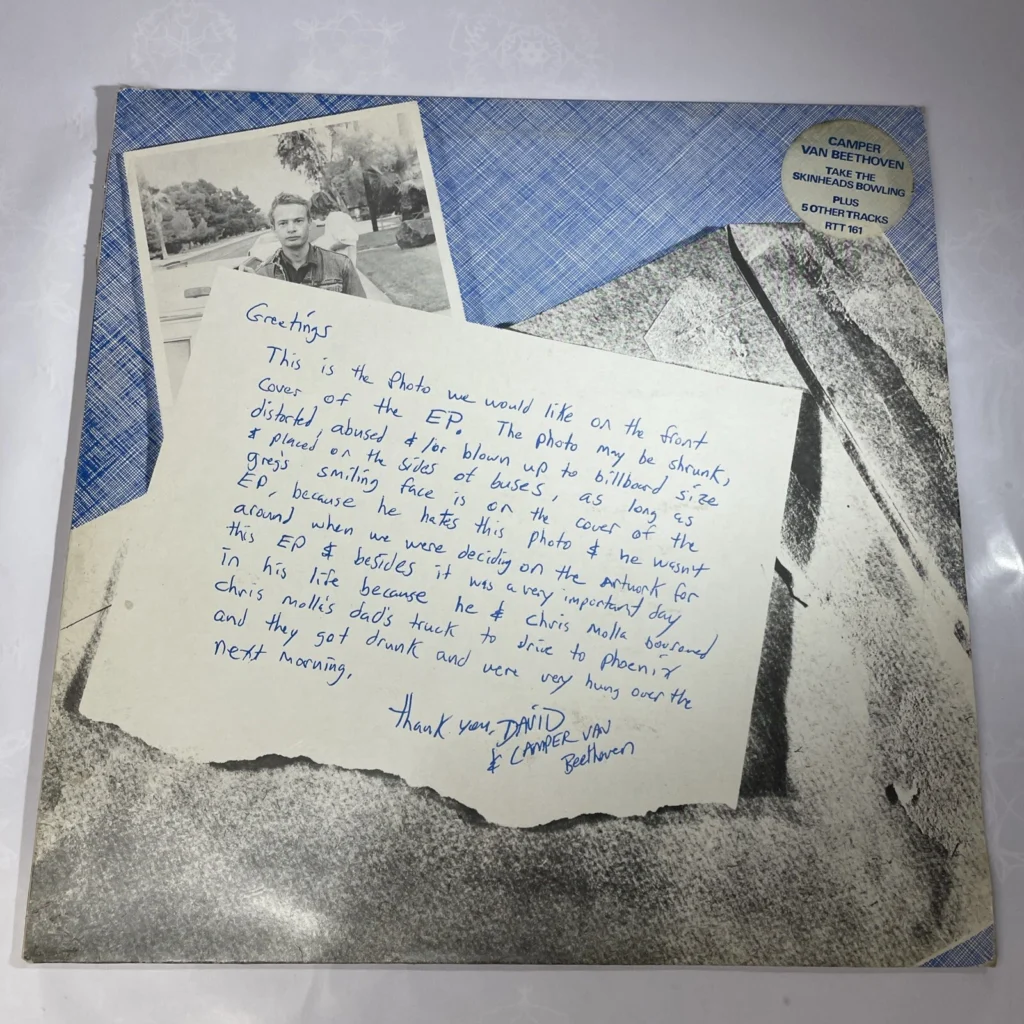 CAMPER
VAN BEETHOVEN
TAKE THE
SKINHEADS BOWLING
PLUS
5 OTHER TRACKS
RTT 161
Greetings
This is the photo we would like on the front
cover of the EP. The photo may be shrunk,
distorted, abused & /or blown up to billboard size
& placed on the sides of buses, as long as
greg's smiling face is on the cover of the
EP, because he hates this photo & he wasn't
around when we were deciding on the artwork for
this EP & besides it was a very important day
in his life because he & Chris Molla borrowed
Chris molla's dad's truck to drive to phoenix
and they got drunk and were very hung over the
next morning.
thank you, DAVID
& CAMPER VAN
Beethoven